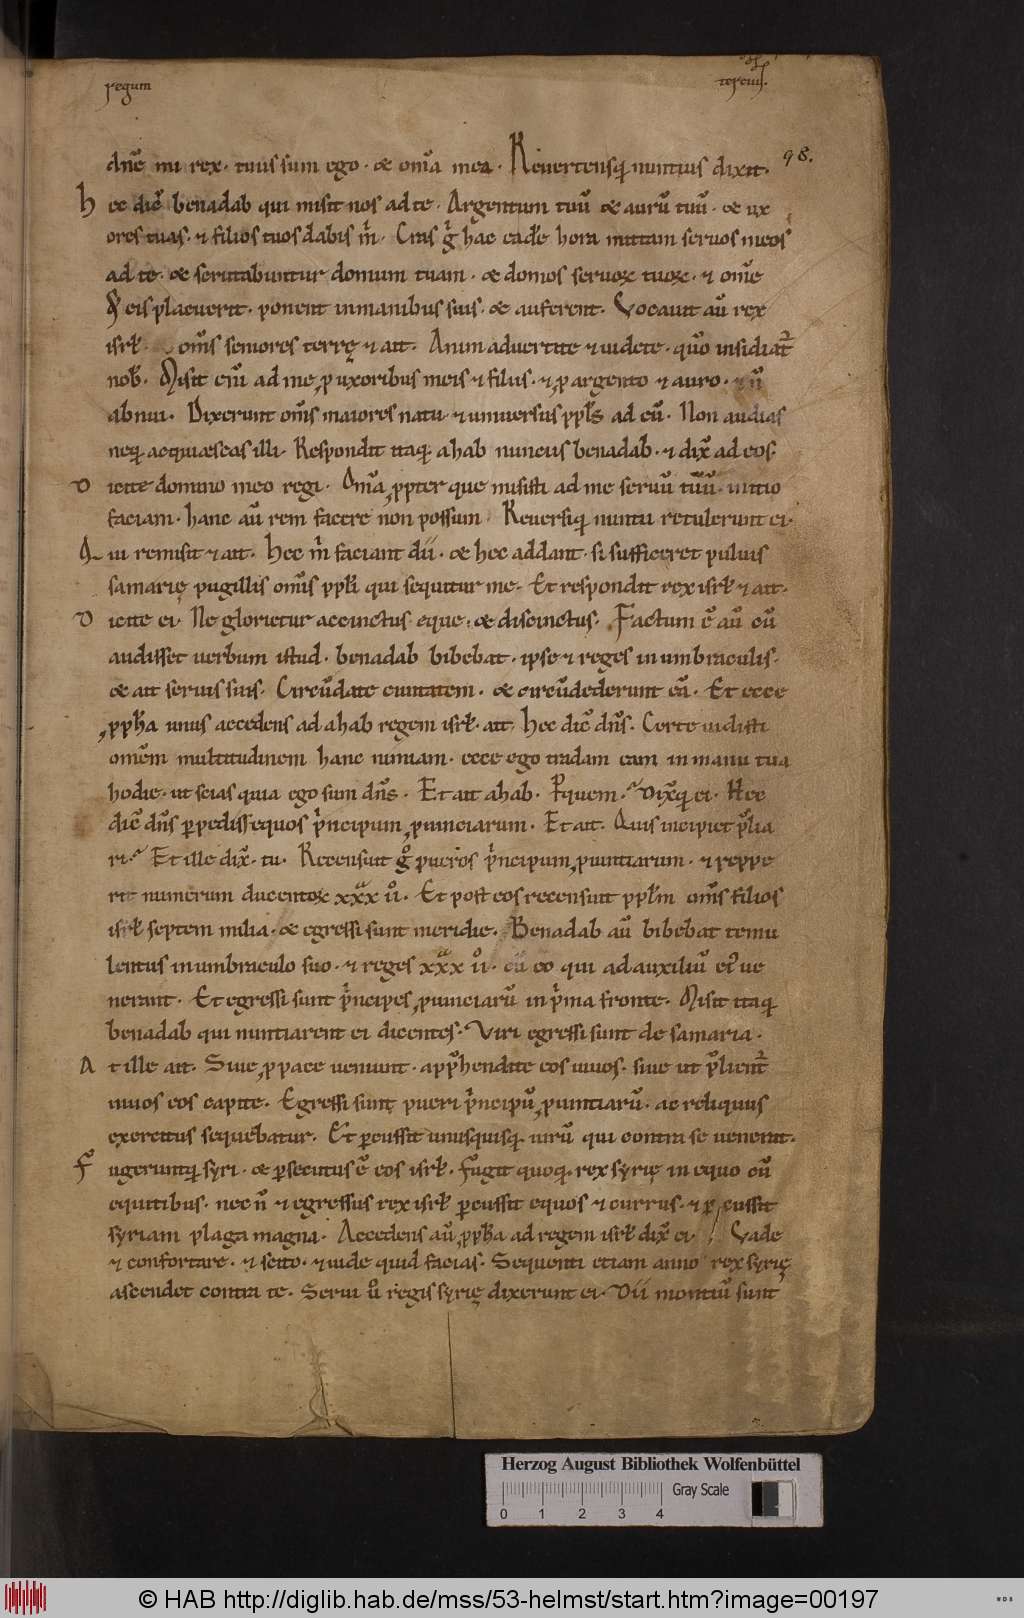 regum
tercius.
98.
dn̄e mi rex. tuus sum ego. & om̄a mea. Reuertensq; nuntius dixit.
Hec dic̄ benadab qui misit nos ad te. Argentum tuū & aurū tuū. & ux
ores tuas. & filios tuos dabis m̄. Cras gͥ hac eadē hora mittam seruos meos
ad te. & scrutabuntur domum tuam. & domos seruoꝝ tuoꝝ. & om̄e
qd eis placuerit. ponent in manibus suis. & auferent. Vocauit aū rex
isrł. om̄s seniores terrę & ait. Animaduertite & uidete. qm̄o insidiat᷑
nob̄. Misit eni̅ ad me ꝓ uxoribus meis & filiis. & ꝓ argento & auro. & n̄
abnui. Dixerunt om̄s maiores natu & uniuersus ppłs ad eū. Non audias
neq; acquiescas illi. Respondit itaq; ahab nuncius benadab. & dix̄ ad eos.
Dicite domino meo regi. Om̄a ꝓpter que misisti ad me seruū tuū. initio
faciam. hanc aū rem facere non possum. Reuersiq; nuntii retulerunt ei.
Qui remisit & ait. Hec m̄ faciant dii. & hec addant. si suffiecerit puluis
samarię pugillis om̄s ppłi qui sequitur me. Et respondit rex isrł & ait.
Dicite ei. Ne glorietur accinctus eque. & discinctus. Factum ē aū cū
audisset uerbum istud. benadab bibebat. ipse & reges in umbraculis.
& ait seruis suis. Circūdate ciuitatem. & circūdederunt eā. Et ecce
ꝓph̄a unus accedens ad ahab regem isrł. ait. Hec dic̄ dn̄s. Certe uidisti
omēm multitudinem hanc nimiam. ecce ego tradam eam in manu tua
hodie. ut scias quia ego sum dn̄s. Et ait ahab. P quem. Dix̄q; ei. Hec
dic̄ dn̄s ꝑ pedissequos pͥncipum ꝓuinciarum. Et ait. Quis incipiet p̄lia
ri. Et ille dix̄. tu. Recensuit gͦ pueros pͥncipum ꝓuintiarum. & reppe
rit numerum ducentoꝝ xxx ii. Et post eos recensuit ppłm om̄s filios
isrł septem milia. & egressi sunt meridie. Benadab aū bibebat temu
lentus in umbraculo suo. & reges xxx ii. cū eo qui ad auxiliū ei᷑ ue
nerant. Et egressi sunt pͥncipes ꝓuinciarū in pͥma fronte. Misit itaq;
benadab qui nuntiarent ei dicentes. Viri egressi sunt de samaria.
At ille ait. Siue ꝓ pace ueniunt. app̄hendite eos uiuos. siue ut p̄lient᷑
uiuos eos capite. Egressi sunt pueri pͥncipū ꝓuintiarū. ac reliquus
exercitus sequebatur. Et ꝑcussit unusquisq; uirū qui contra se uenerat.
Fugeruntq; syri. & ꝑsecutus ē eos isrł. Fugit quoq; rex syrię in equo cū
equitibus. nec n̄ & egressus rex isrł ꝑcussit equos & currus. & ꝑcussit
syriam plaga magna. Accedens aū ꝓph̄a ad regem isrł dix̄ ei. Vade
& confortare. & scito. & uide quid facias. Sequenti etiam anno rex syrię
ascendet contra te. Serui u̅o regis syrię dixerunt ei. Dii montiū sunt
Herzog August Bibliothek Wolfenbüttel
Gray Scale
0 1 2 3 4
© HAB http://diglib.hab.de/mss/53-helmst/start.htm?image=00197